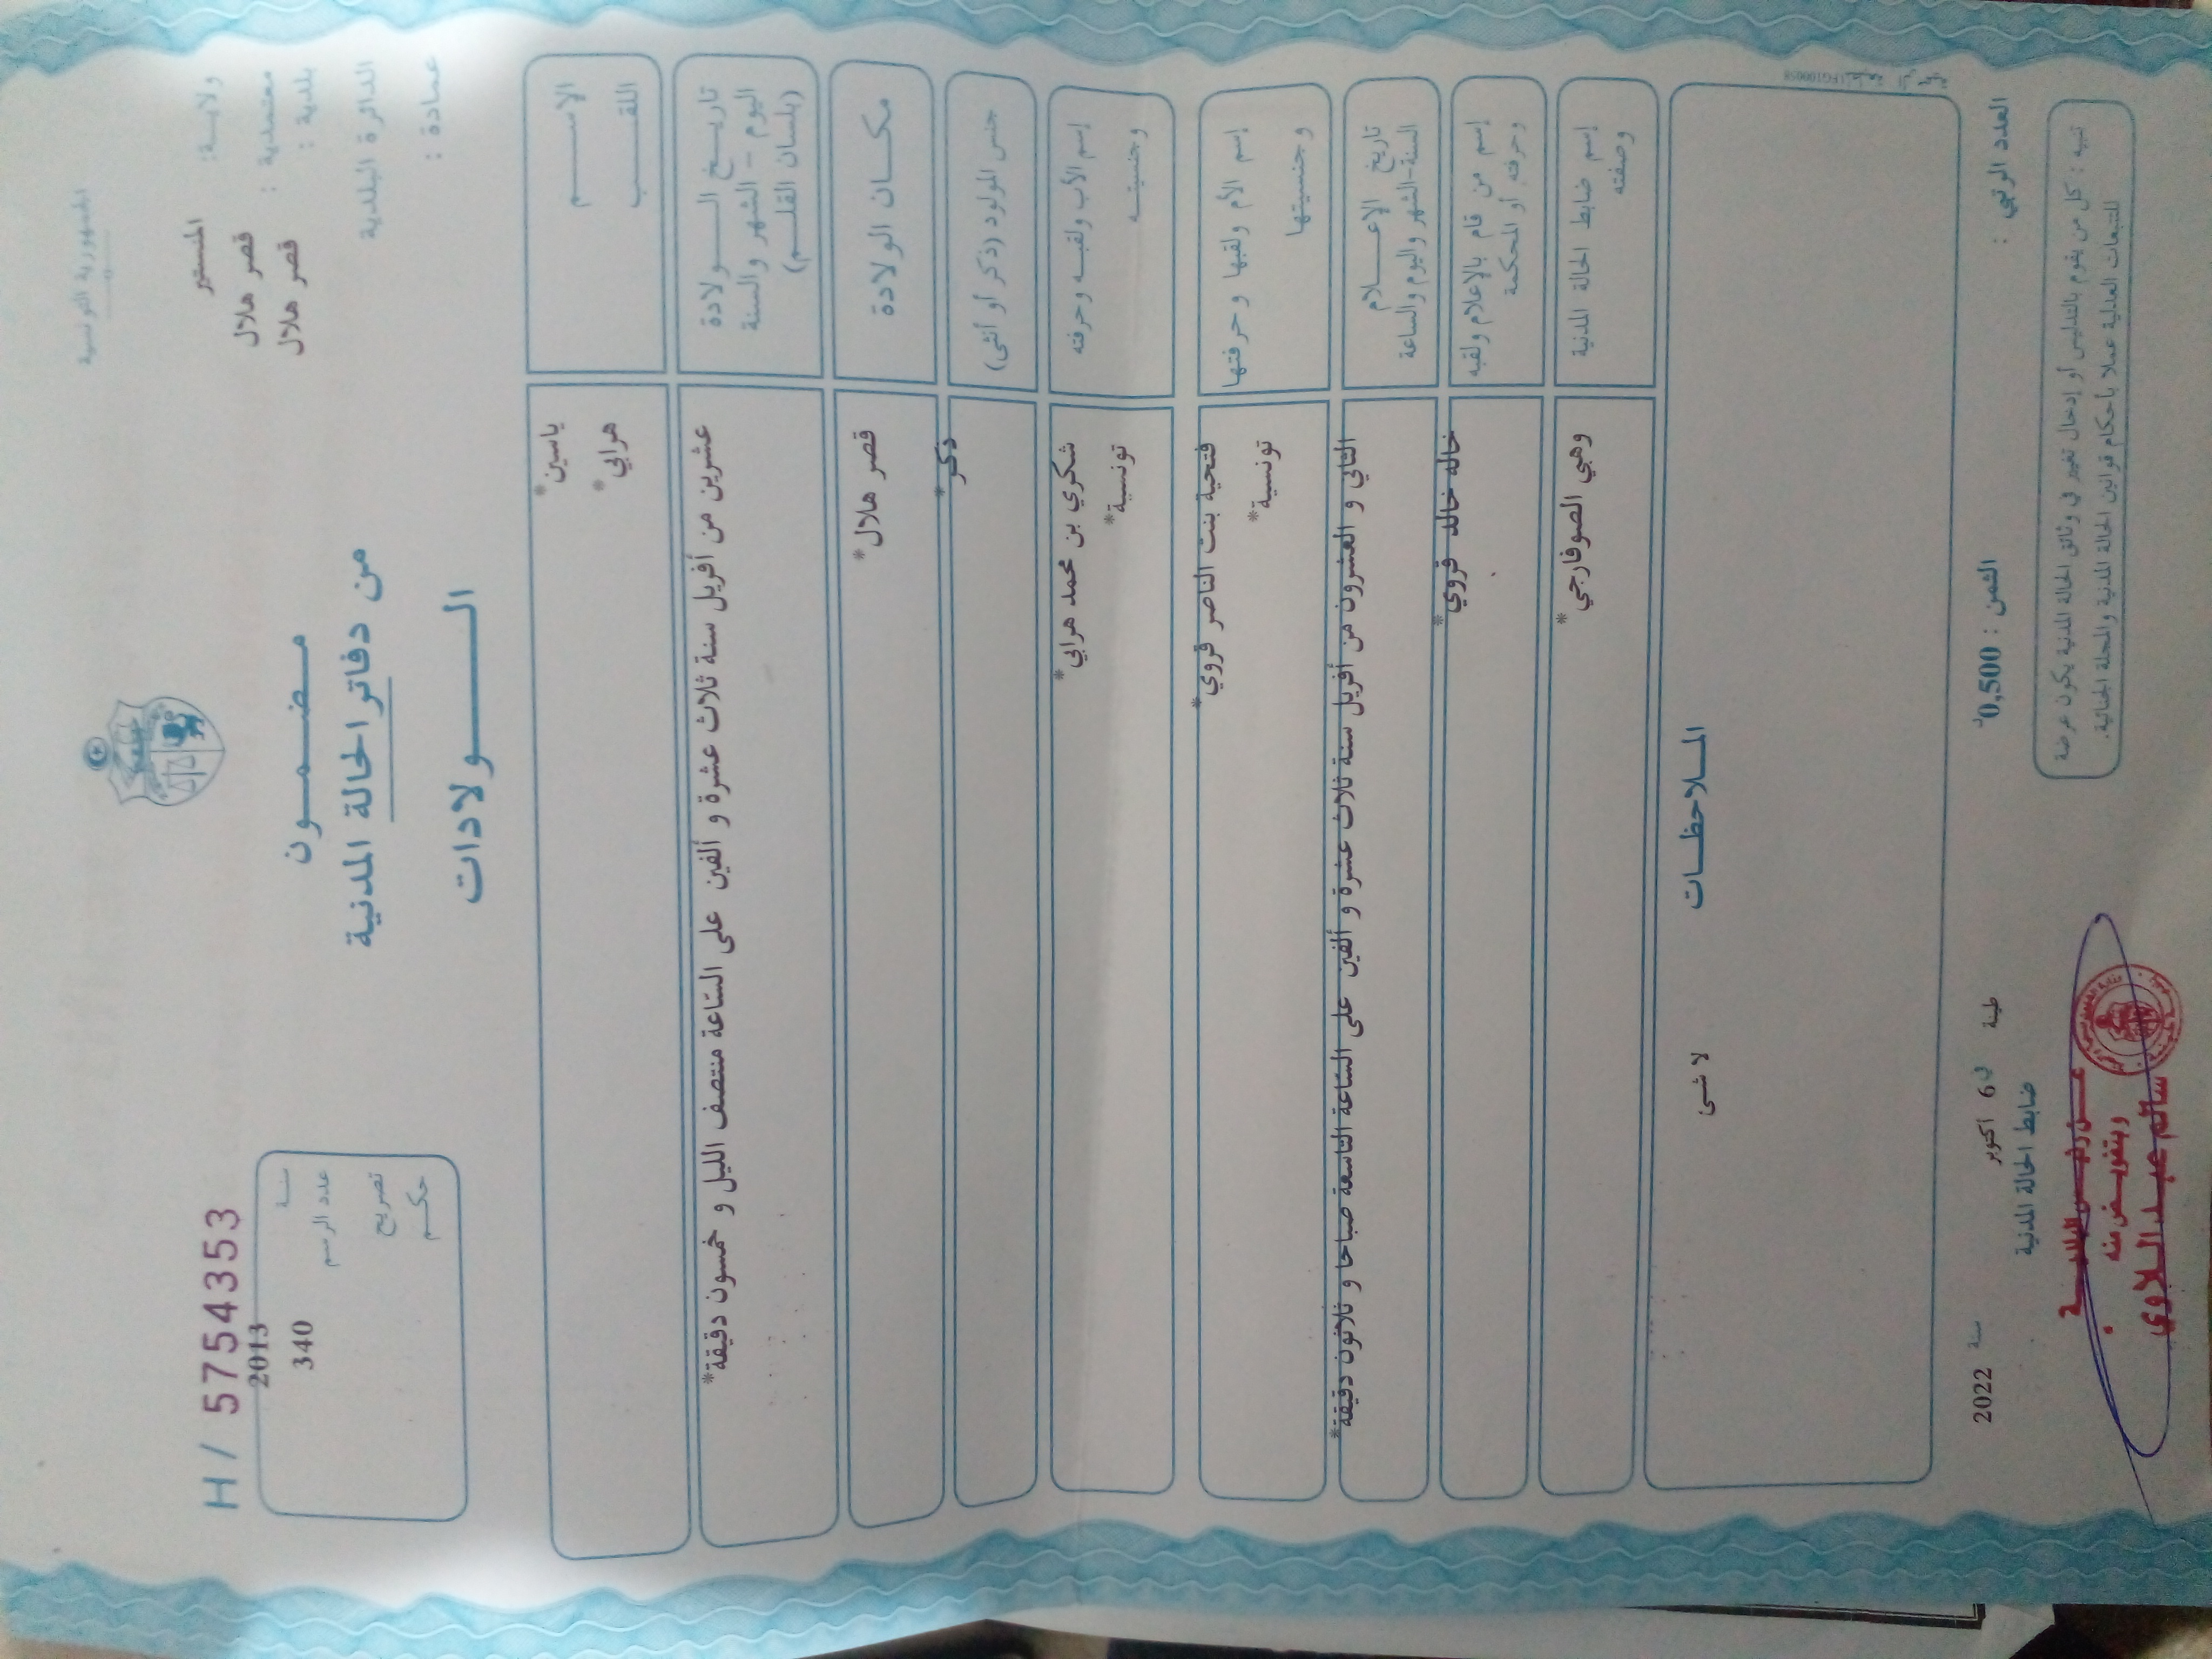 الجمهورية التونسية
ولاية: المنستير
معتمدية : قصر هلال
بلدية : قصر هلال
الدائرة البلدية
عمادة :
H / 5754353
سنة 2013
عدد الرسم 340
تصريح
حكم
مضمون
من دفاتر الحالة المدنية
الولادات
الاسم ياسين*
اللقب هرابي*
تاريخ الولادة
اليوم - الشهر والسنة
(بلسان القلم)
عشرين من أفريل سنة ثلاث عشرة و ألفين على الساعة منتصف الليل و خمسون دقيقة*
مكان الولادة قصر هلال*
جنس المولود (ذكر أو أنثى) ذكر*
إسم الأب ولقبه وحرفته شكري بن محمد هرابي*
وجنسيته تونسية*
إسم الأم ولقبها وحرفتها فتحية بنت الناصر قروي*
وجنسيتها تونسية*
تاريخ الإعلام
السنة-الشهر واليوم والساعة
الثاني و العشرون من أفريل سنة ثلاث عشرة و ألفين على الساعة التاسعة صباحا و ثلاثون دقيقة*
إسم من قام بالإعلام ولقبه
وحرفته أو المحكمة
خاله خالد قروي*
إسم ضابط الحالة المدنية
وصفته
وهبي الصوفارجي*
الملاحظات
لا شئ
العدد الرتبي :
الثمن : 0,500
طينة في 6 أكتوبر سنة 2022
ضابط الحالة المدنية
تنبيه : كل من يقوم بالتدليس أو إدخال تغيير في وثائق الحالة المدنية يكون عرضة
للتتبعات العدلية عملا بأحكام قوانين الحالة المدنية والمجلة الجنائية.
عن رئيس البلدية
وبتفويض منه
سالم عبد اللاوي